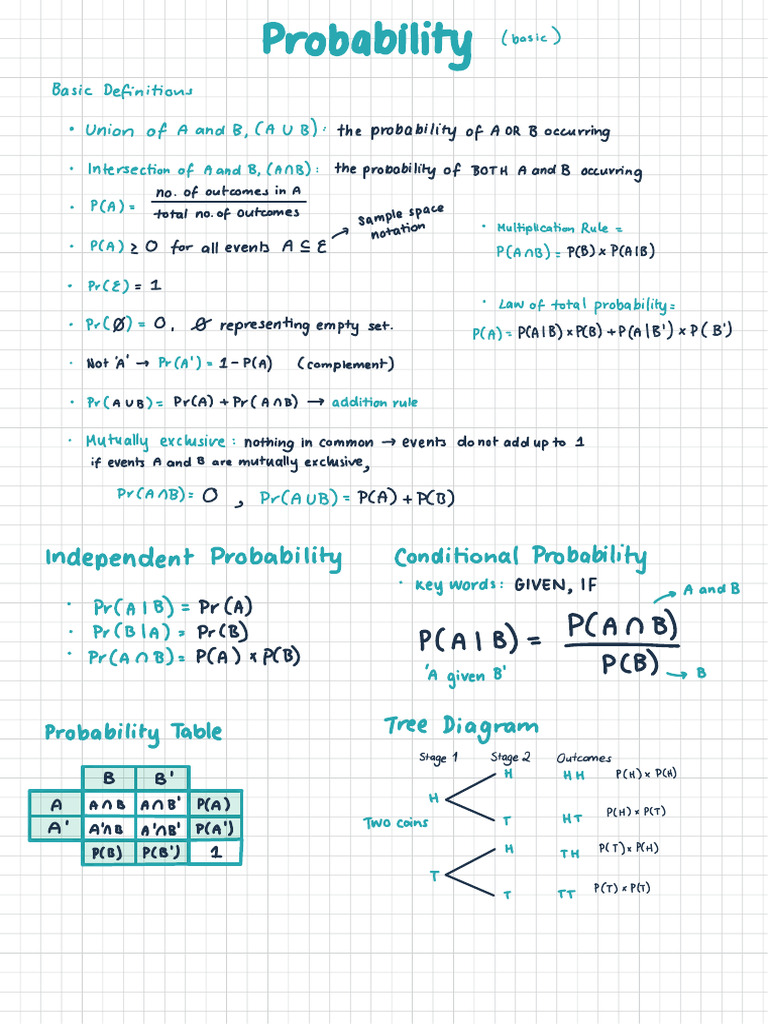 Probability (basic)
Basic Definitions
• Union of A and B, (A ∪ B): the probability of A OR B occurring
• Intersection of A and B, (A∩B): the probability of BOTH A and B occurring
• P(A) = no. of outcomes in A / total no. of outcomes
• P(A) ≥ 0 for all events A ⊆ ℰ → Sample space notation
• Pr(ℰ) = 1
• Pr(∅) = 0, ∅ representing empty set.
• Not 'A' → Pr(A') = 1 - P(A) (complement)
• Pr(A ∪ B) = Pr(A) + Pr(A∩B) → addition rule
• Mutually exclusive: nothing in common → events do not add up to 1
if events A and B are mutually exclusive,
Pr(A∩B) = 0 , Pr(A∪B) = P(A) + P(B)
• Multiplication Rule =
P(A∩B) = P(B) × P(A|B)
• Law of total probability =
P(A) = P(A|B) × P(B) + P(A|B') × P(B')
Independent Probability
• Pr(A|B) = Pr(A)
• Pr(B|A) = Pr(B)
• Pr(A∩B) = P(A) × P(B)
Conditional Probability
• Key words: GIVEN, IF
P(A|B) = P(A∩B) / P(B)
→ A and B
→ B
'A given B'
Probability Table
B B'
A A∩B A∩B' P(A)
A' A'∩B A'∩B' P(A')
P(B) P(B') 1
Tree Diagram
Stage 1 Stage 2 Outcomes
Two coins
H H HH P(H) × P(H)
T HT P(H) × P(T)
T H TH P(T) × P(H)
T TT P(T) × P(T)